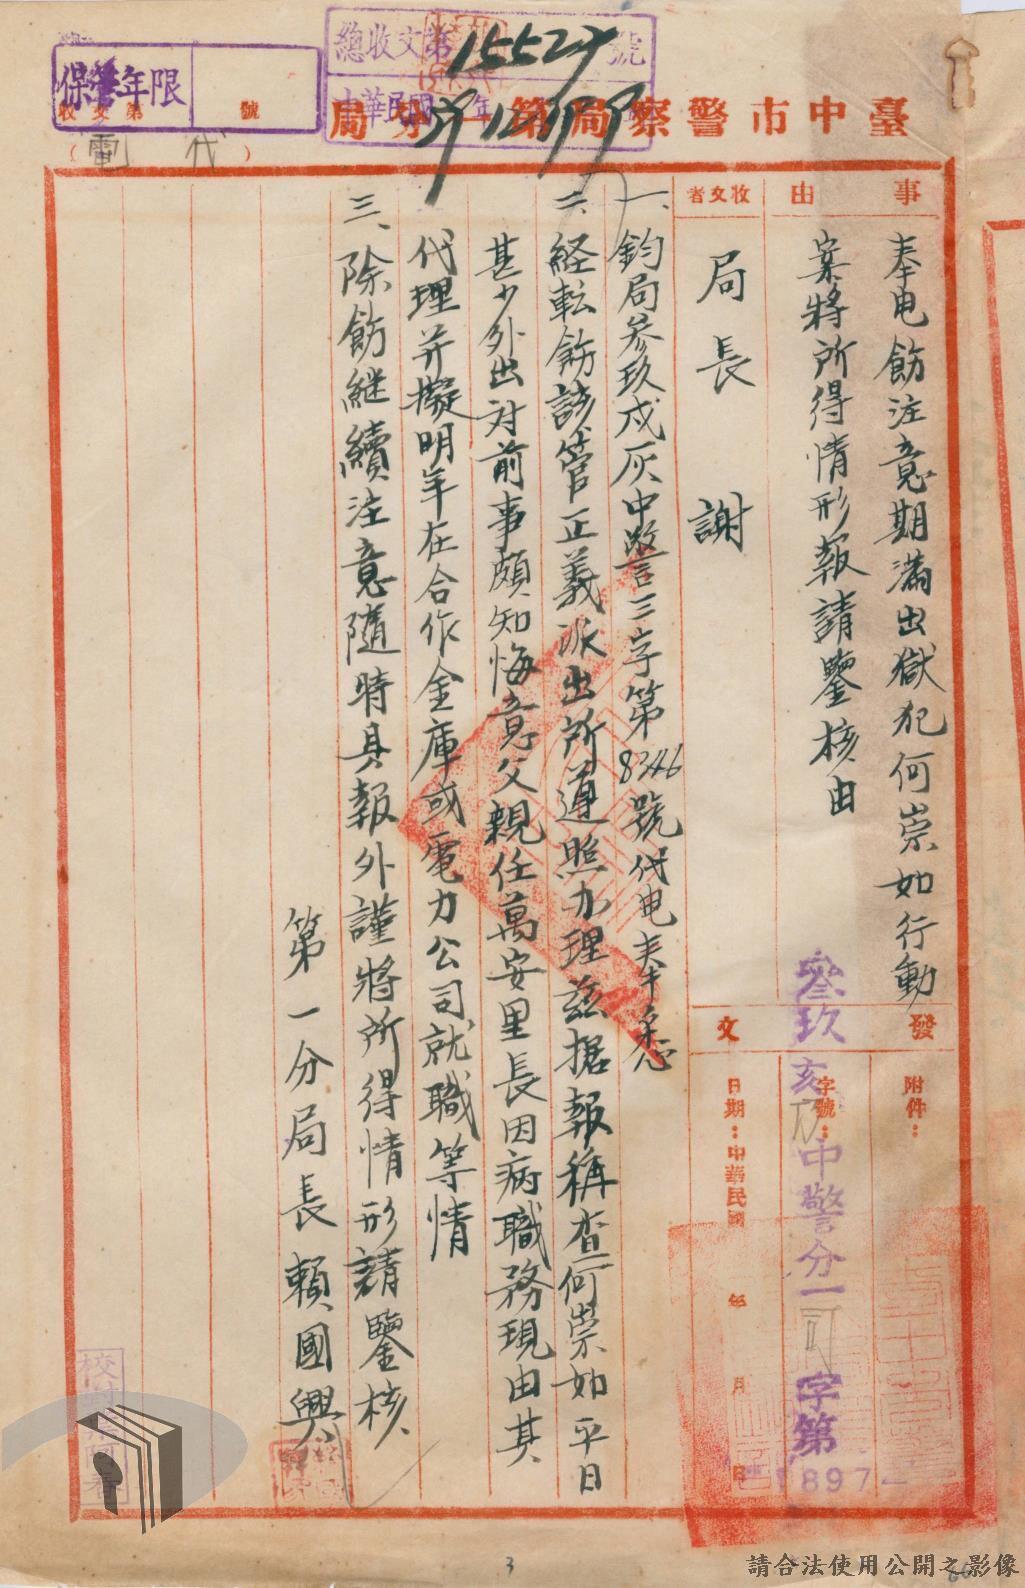 總收文第15527號
中華民國 年
39 12 19
保管年限
收文第 號
臺中市警察局第一分局
(代電)
事由
奉电飭注意期滿出獄犯何崇如行動
案將所得情形報請鑒核由
收文者
局長 謝
發文
附件：
字號：
日期：中華民國 年 月 日
參玖亥 中警分一司字第
897
一、鈞局参玖戍灰中警三字第8346號代电奉悉
二、経転飭該管正義派出所遵照办理茲据報稱查何崇如平日
甚少外出对前事頗知悔意父親任萬安里長因病職務現由其
代理并擬明年在合作金庫或電力公司就職等情
三、除飭継續注意隨時具報外謹將所得情形請鑒核
第一分局長賴國興
3
請合法使用公開之影像